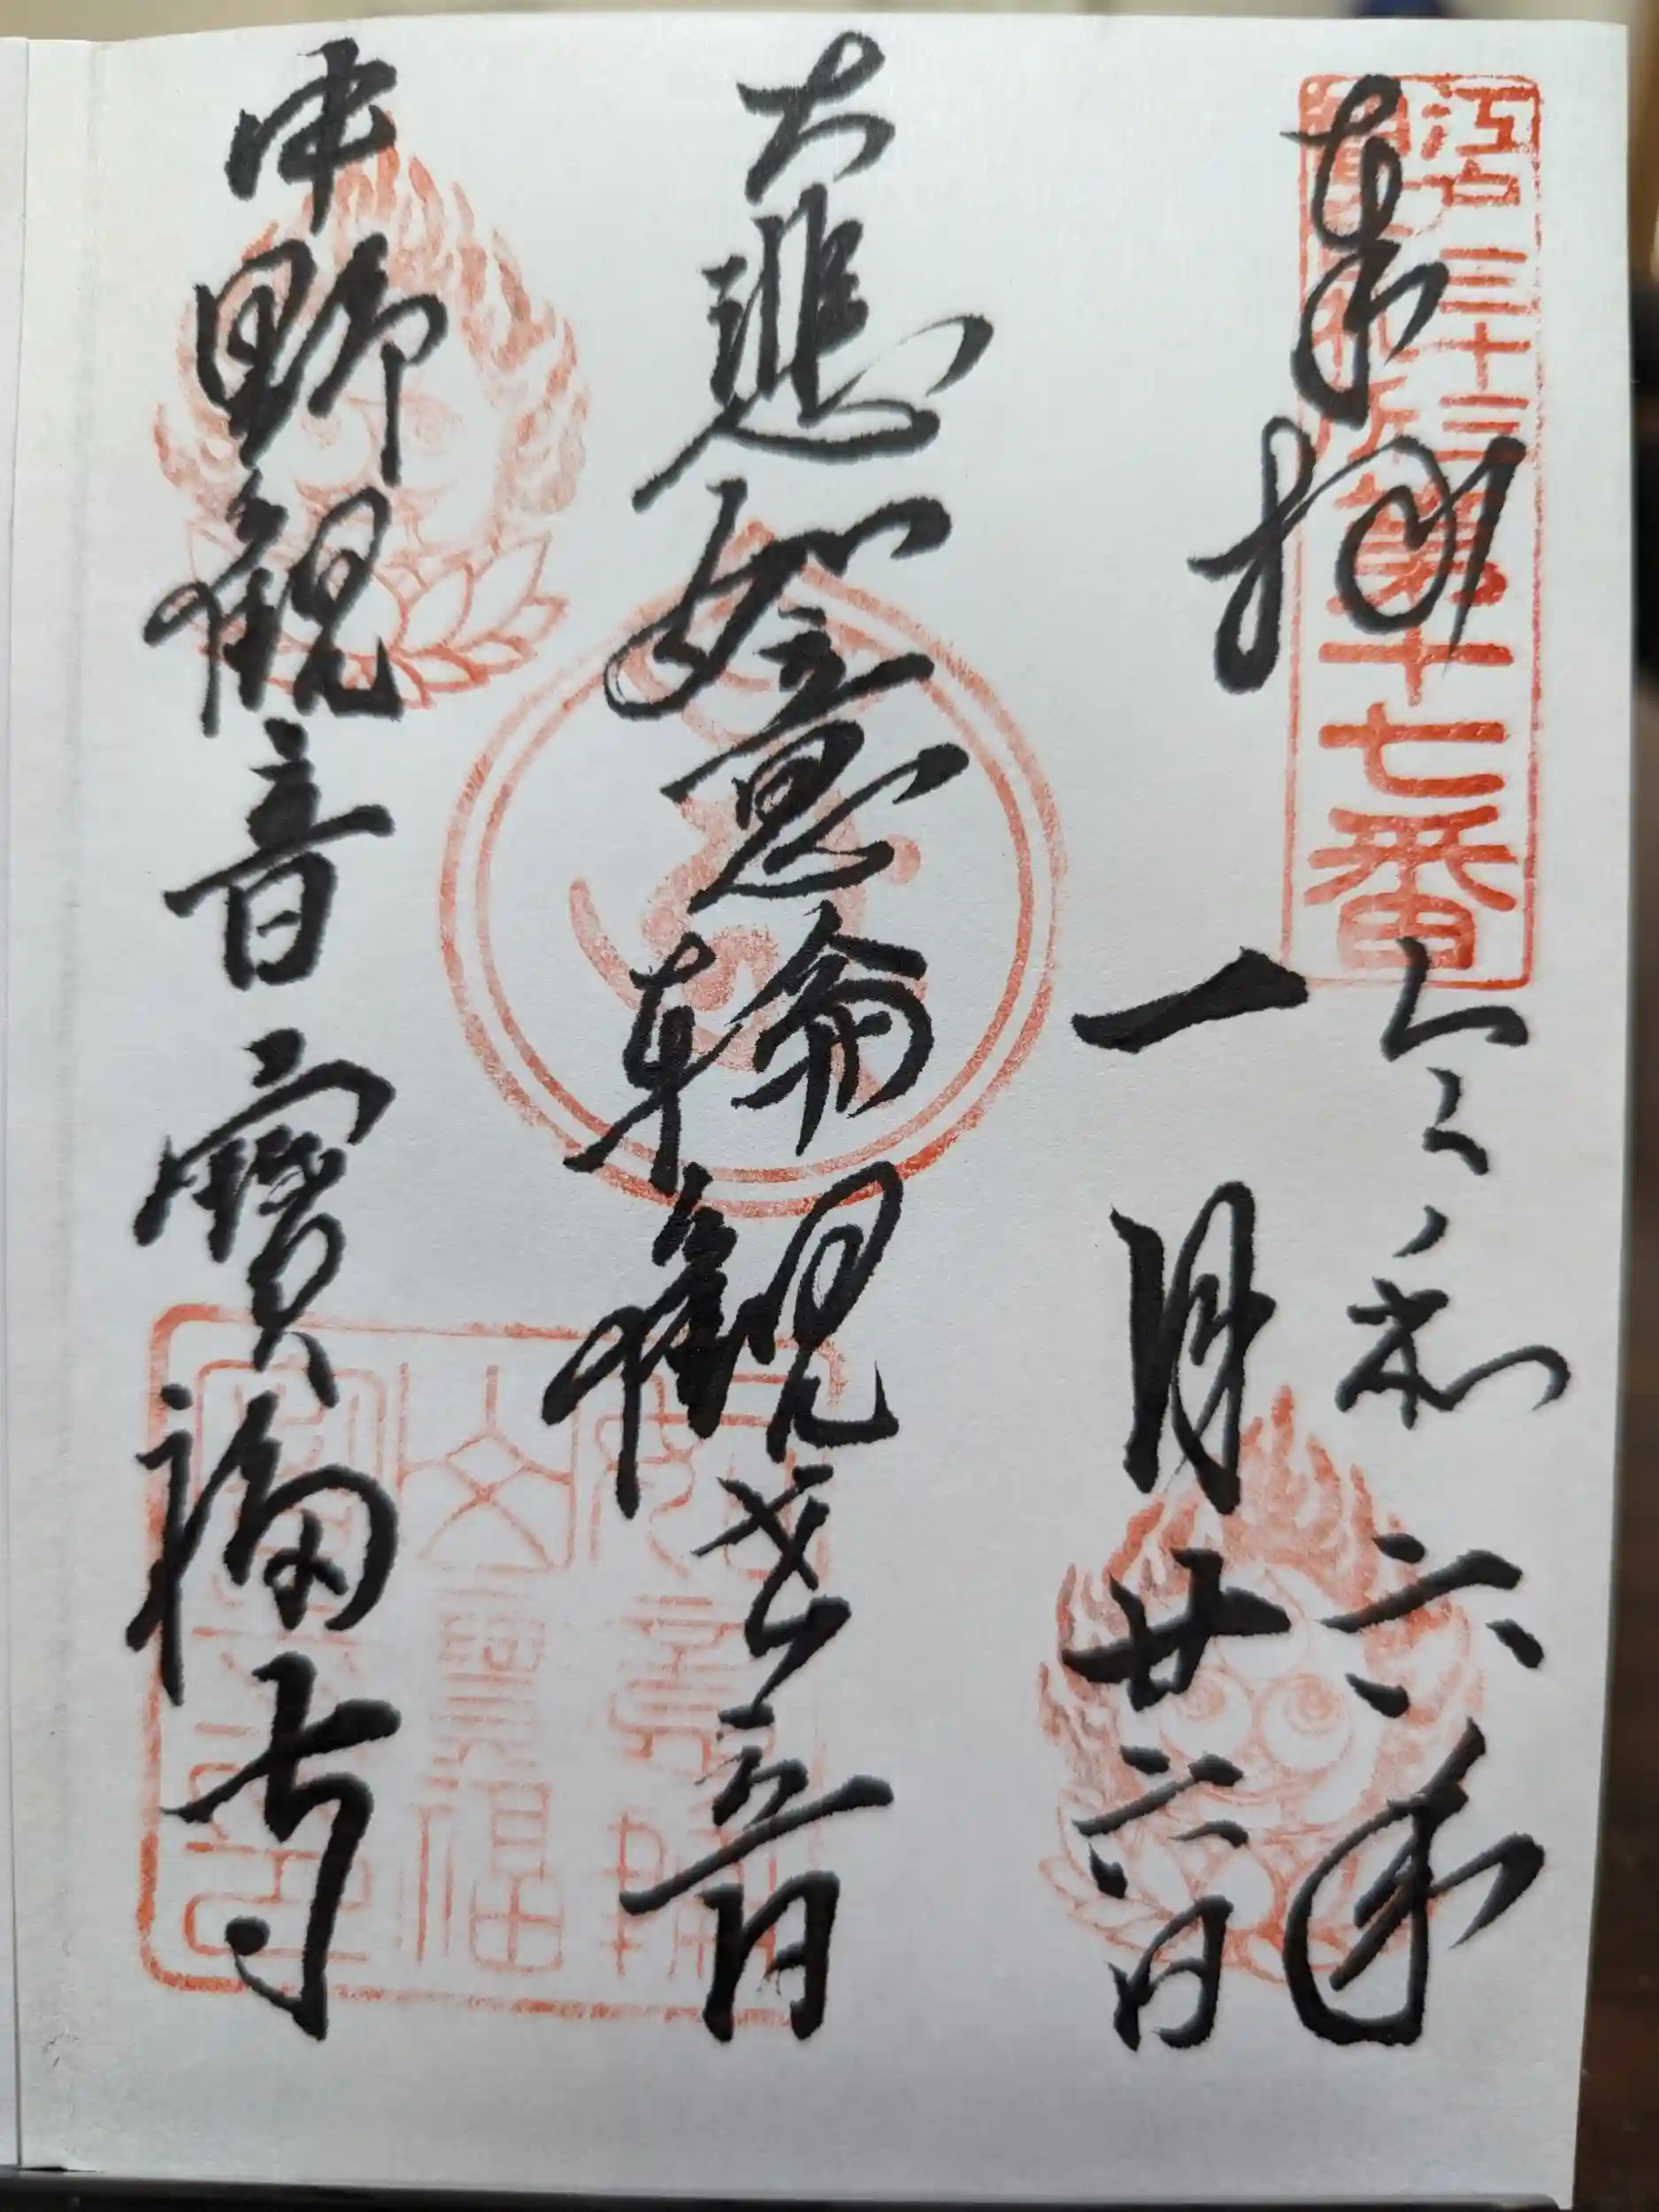 奉拝
令和六年
一月廿六日
大悲如意輪観世音
中野観音寳福寺
江戸三十三
第十七番